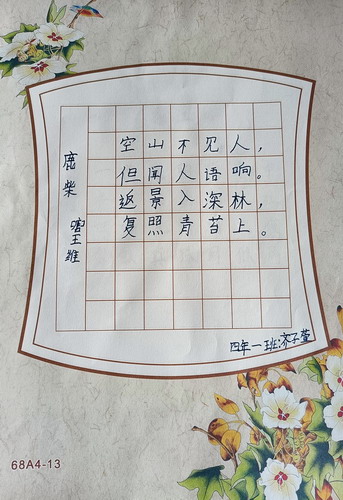 鹿柴
王维
空山不见人，
但闻人语响。
返景入深林，
复照青苔上。
四年一班:齐子萱
68A4-13